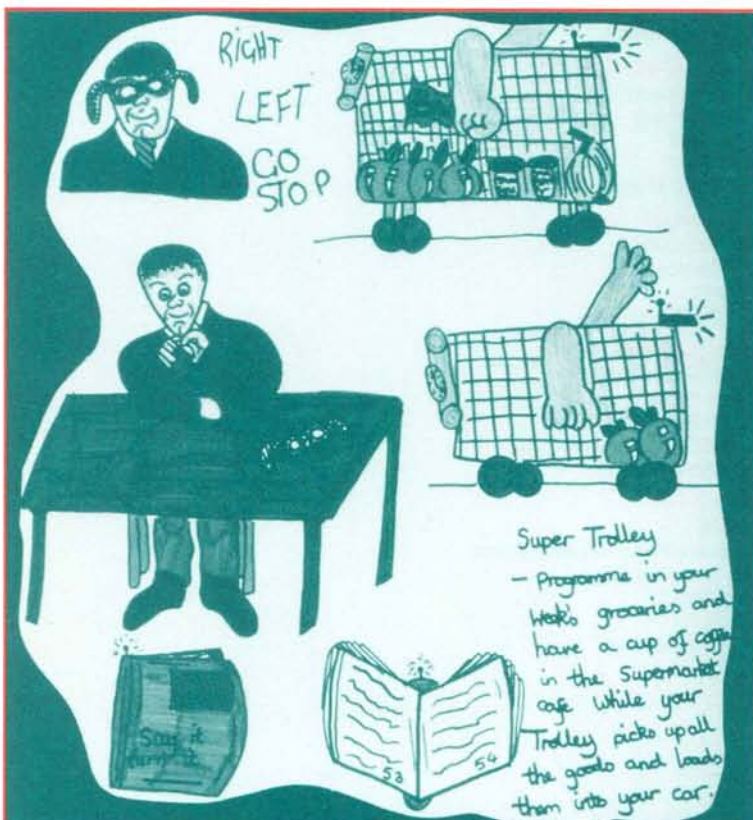 RIGHT
LEFT
GO
STOP
Super Trolley
- Programme in your
week's groceries and
have a cup of coffee
in the Supermarket
cafe while your
Trolley picks up all
the goods and loads
them into your car.
Say it
turn it
53
54